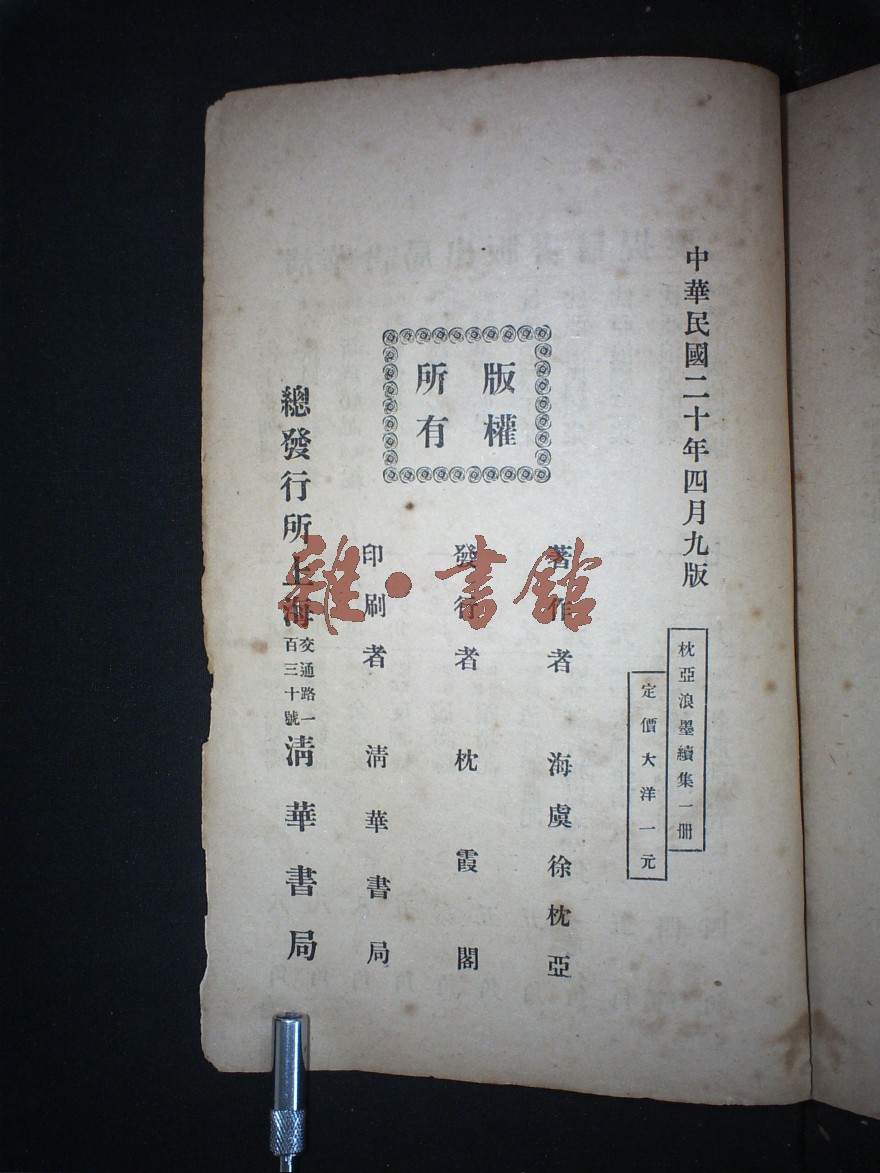 中華民國二十年四月九版
枕亞浪墨續集一冊
定價大洋一元
版權
所有
著作者 海虞徐枕亞
發行者 枕霞閣
印刷者 清華書局
總發行所上海交通路一百三十號清華書局
雜·書館